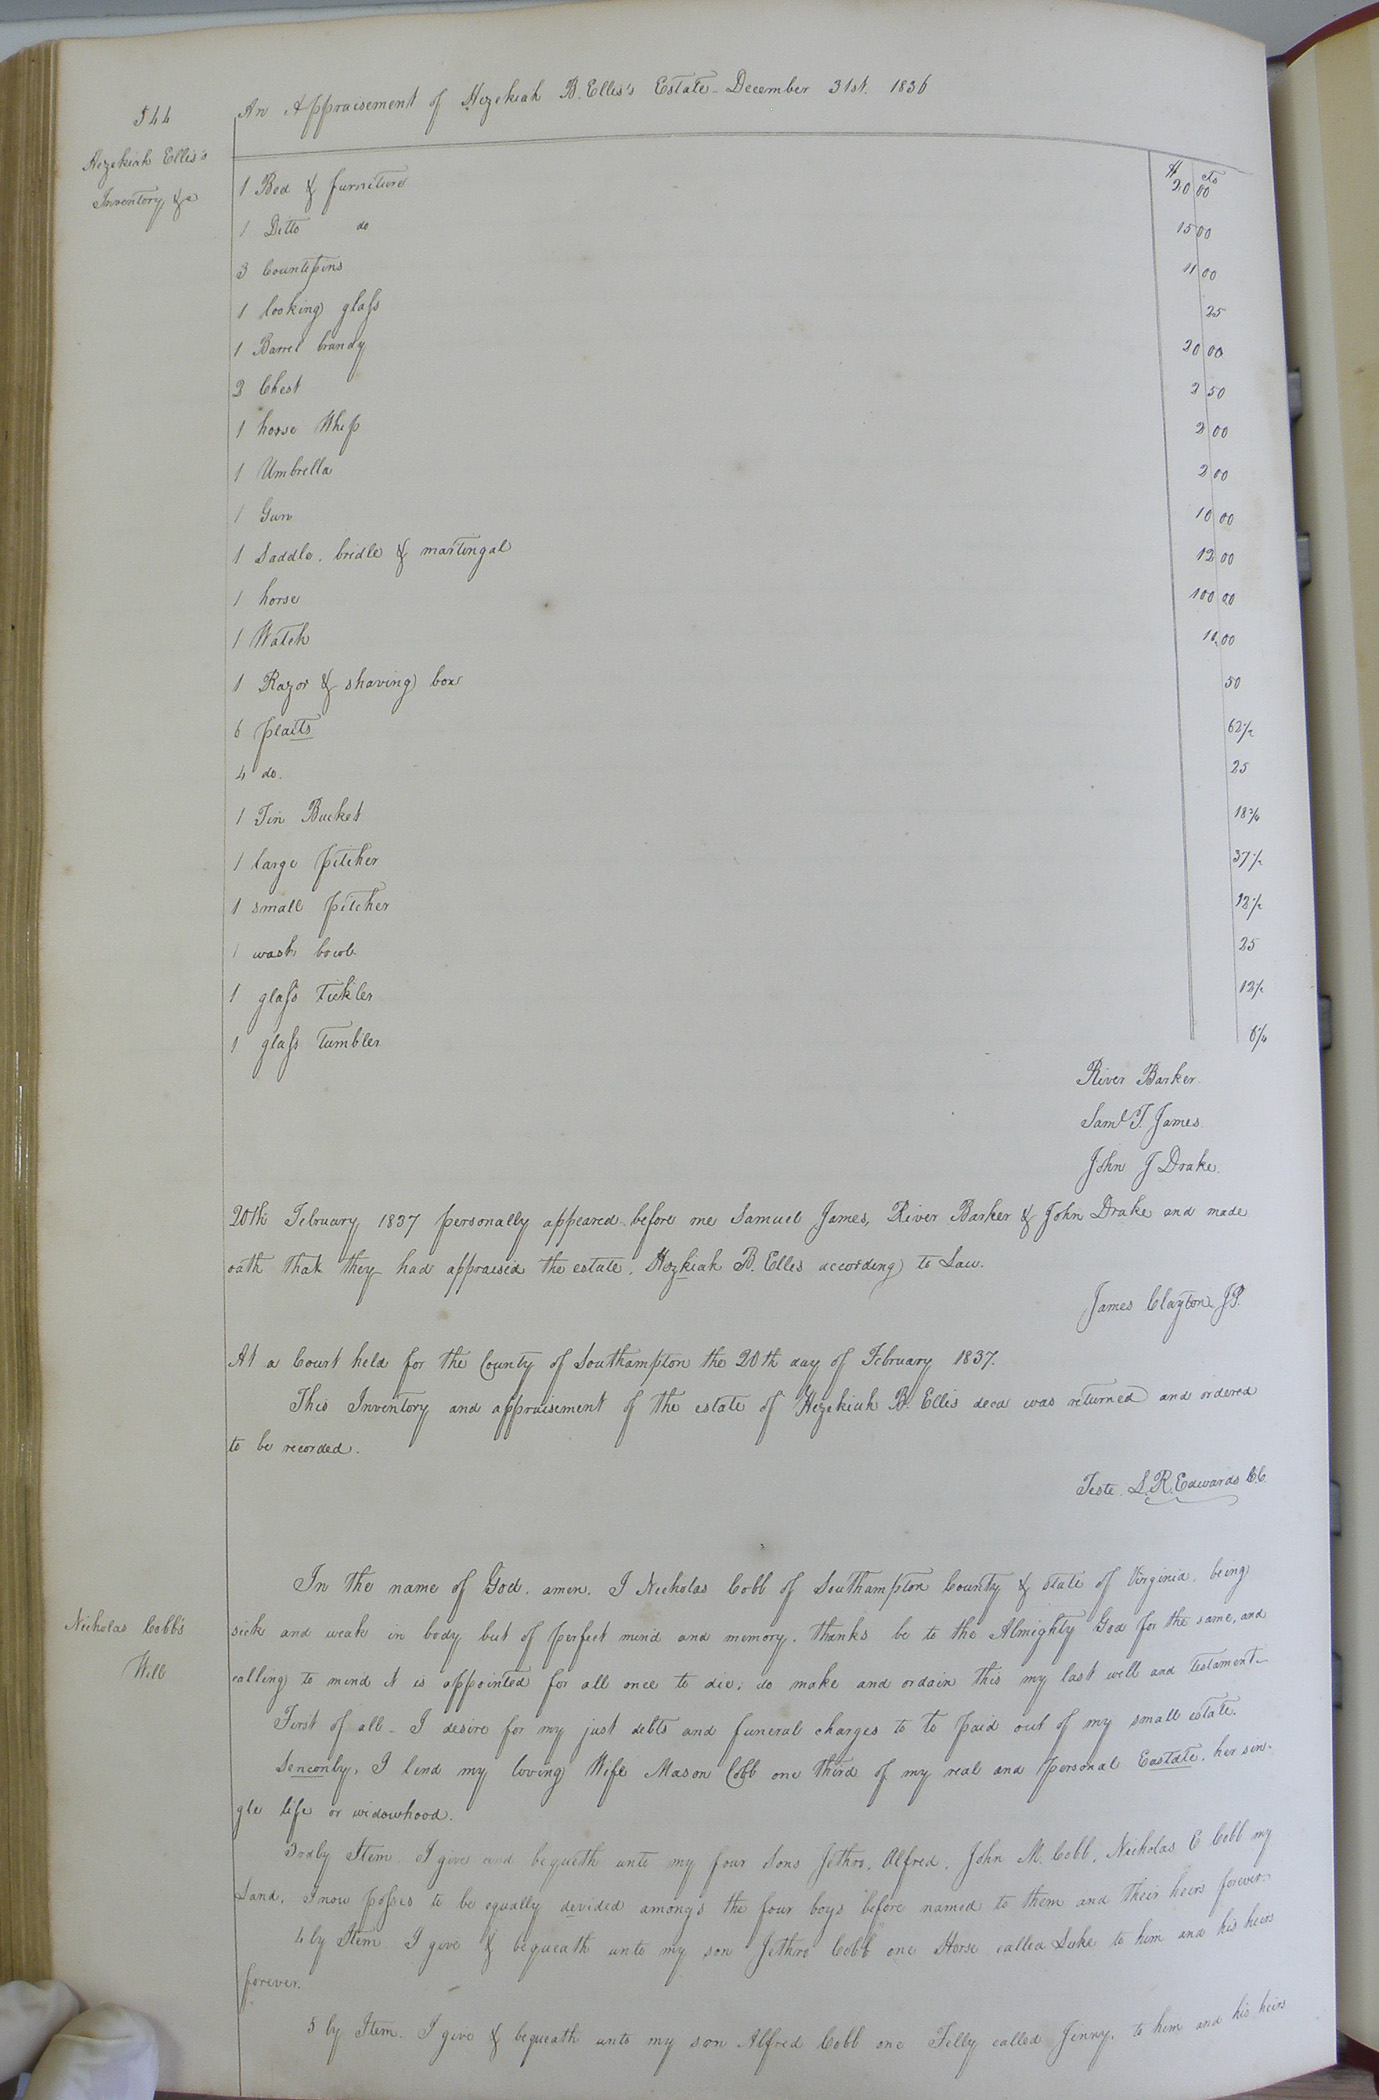 544
An Appraisement of Hezekiah B. Elles's Estate - December 31st. 1836
Hezekiah Ellis's
Inventory, &c
$ cts
1 Bed & furniture 20 00
1 Ditto do 15 00
3 Countepins 11 00
1 looking glass 25
1 Barrel brandy 20 00
3 Chest 2 50
1 horse Whip 2 00
1 Umbrella 2 00
1 Gun 10 00
1 Saddle, bridle & martingal 12 00
1 horse 100 00
1 Watch 00
1 Razor & shaving box 50
6 plaits 62½
4 do. 25
1 Tin Bucket 18¾
1 large pitcher 37½
1 small pitcher 12½
1 wash bowl 25
1 glass tickler 12½
1 glass tumbler 6¼
River Barker
Saml T. James
John J Drake.
20th February 1837 personally appeared before me Samuel James, River Barker & John Drake and made
oath that they had appraised the estate, Hezkiah B. Elles according to Law.
James Clayton J.P.
At a Court held for the County of Southampton the 20th day of February 1837.
This Inventory and appraisement of the estate of Hezekiah B. Ellis decd was returned and ordered
to be recorded.
Teste. L. R. Edwards C.C.
In the name of God, amen. I Nicholas Cobb of Southampton County & state of Virginia, being
Nicholas Cobb's
Will
sick and weak in body but of perfect mind and memory, thanks be to the Almighty God for the same, and
calling to mind it is appointed for all once to die; do make and ordain this my last will and testament.
First of all - I desire for my just debts and funeral charges to to paid out of my small estate.
Senconly, I lend my loving Wife Mason Cobb one third of my real and personal Eastate, her sin-
gle life or widowhood.
3rdly Item I give and bequeth unto my four Sons Jethro, Alfred, John M. Cobb, Nicholas E Cobb my
Land, I now posses to be equally devided amongs the four boys before named to them and their heirs forever.
4ly Item I give & bequeath unto my son Jethro Cobb one Horse called Luke to him and his heirs
forever.
5ly Item. I give & bequeath unto my son Alfred Cobb one Filly called Jinny, to him and his heirs